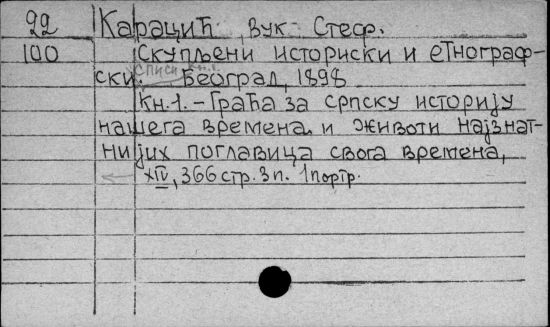 22 Карацић Вук Стеф.
100 Скупљени историски и етнограф-
ски списи кн.1. Београд, 1898
Кн.1.-Грађа за српску историју
нашега времена и животи најзнат-
нијих поглавица свога времена,
XIV, 366 стр. 3 п. 1 портр.